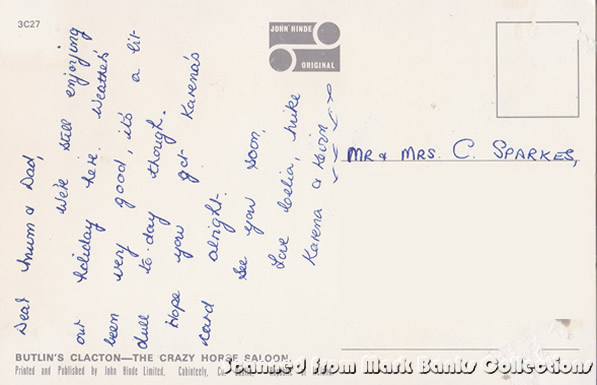 3C27
JOHN HINDE
ORIGINAL
Dear Mum & Dad,
We're still enjoying
our holiday here. Weather's
been very good, it's a lit-
dull to-day though.
Hope you got Karena's
card alright.
See you soon.
Love Celia, Mike
Karena & Kevin
MR & MRS. C. SPARKES,
BUTLIN'S CLACTON—THE CRAZY HORSE SALOON.
Printed and Published by John Hinde Limited, Cabinteely, Co. Dublin, Republic of Ireland.
Scanned from Mark Banks Collections